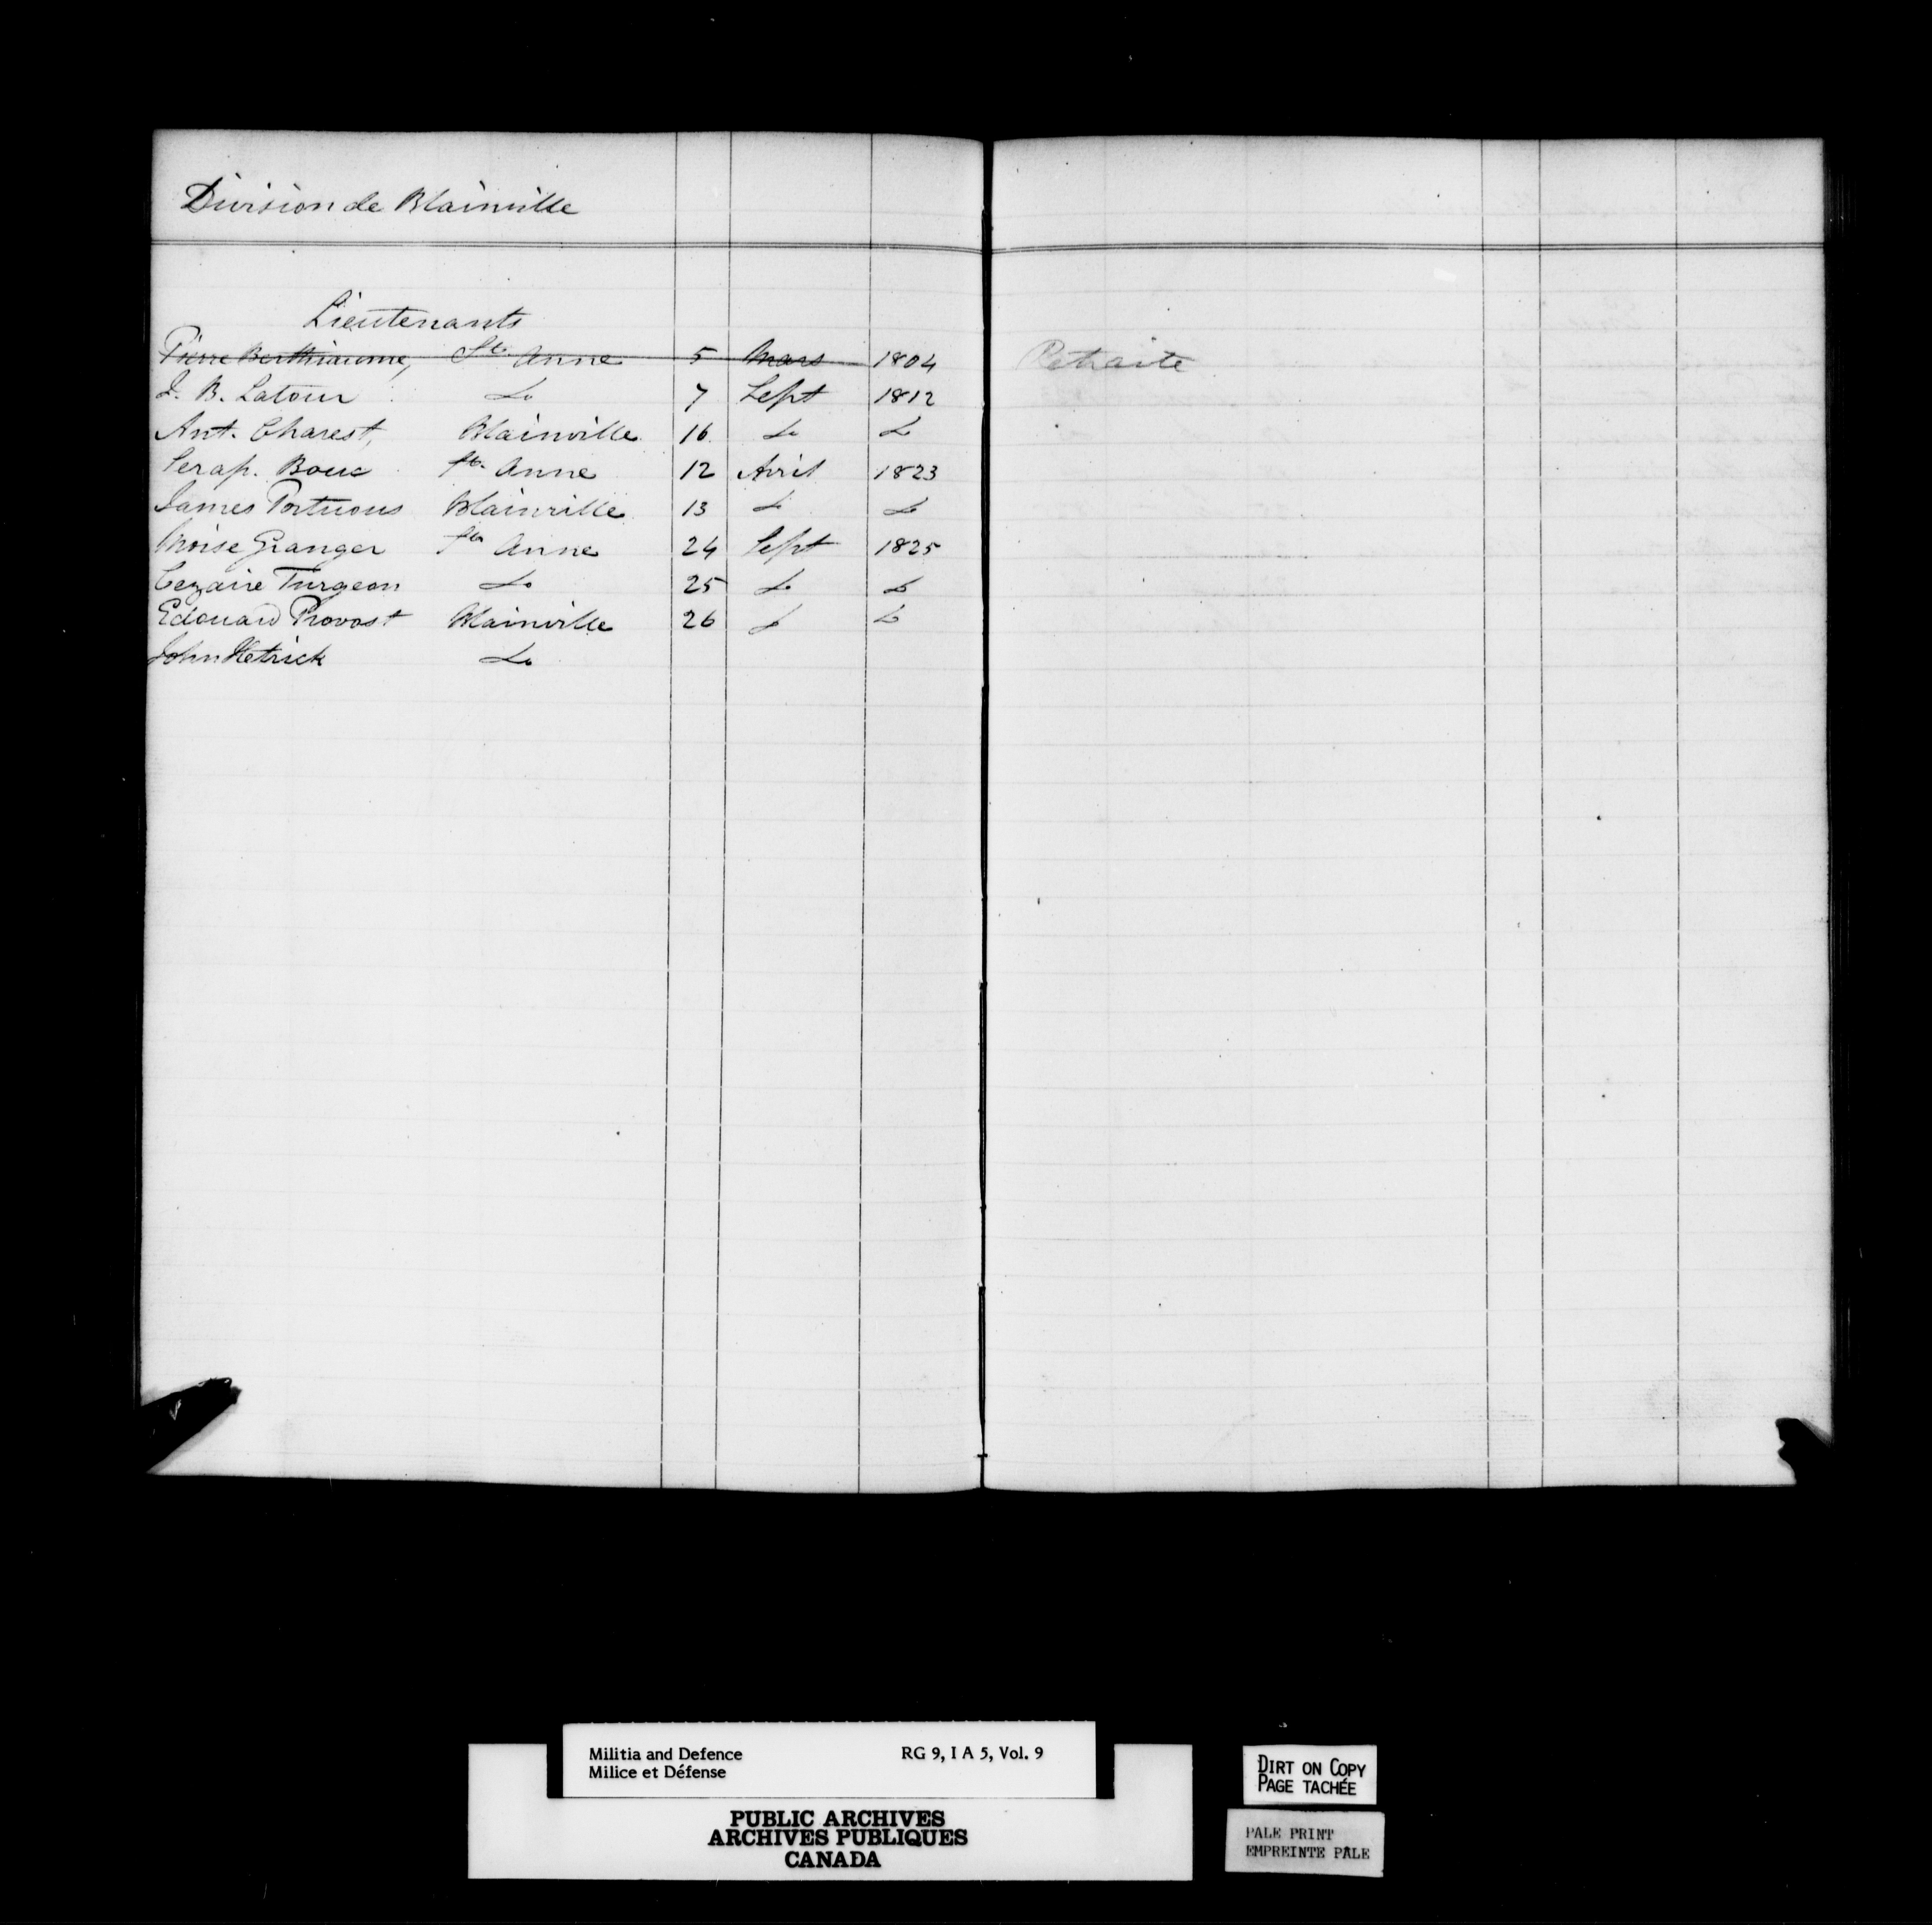 Division de Blainville
Lieutenants
Pierre Berthiaume, Ste Anne 5 Mars 1804 Retraite
J. B. Latour Do 7 Sept 1812
Ant. Charest, Blainville 16 Do Do
Serap. Bouc Ste Anne 12 Avril 1823
James Portuous Blainville 13 Do Do
Moise Granger Ste Anne 24 Sept 1825
Cezaire Turgeon Do 25 Do Do
Edouard Provost Blainville 26 Do Do
John Hetrick Do
Militia and Defence RG 9, I A 5, Vol. 9
Milice et Défense
PUBLIC ARCHIVES
ARCHIVES PUBLIQUES
CANADA
DIRT ON COPY
PAGE TACHÉE
PALE PRINT
EMPREINTE PÂLE